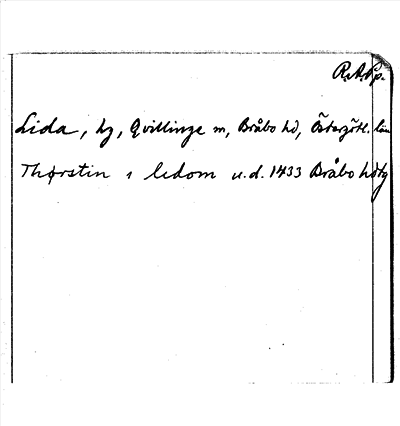 R.A.Pp.
Lida, hg, Qvillinge sn, Bråbo hd, Östergötl. län
Thørstin i ledom u.d. 1433 Bråbo hdtg